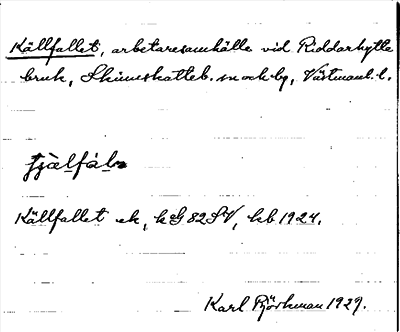 Källfallet, arbetaresamhälle vid Riddarhytte
bruk, Skinnskatteb. sn och bg, Västmanl. l.
Källfallet ek, kG 82 SV, kb 1924.
Karl Björkman 1929.